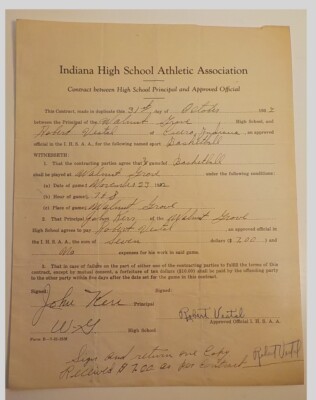 Indiana High School Athletic Association
Contract between High School Principal and Approved Official
This Contract, made in duplicate this 31st day of October
between the Principal of the Walnut Grove High School, and
Robert Vestal of Cicero, Indiana an approved
official in the I. H. S. A. A., for the following named sport Basketball
WITNESSETH
1. That the contracting parties agree that game(s) Basketball
shall be played at Walnut Grove under the following conditions:
(a) Date of game November 27
(b) Hour of game
(c) Place of game Walnut Grove
2. That Principal John Kerr of the Walnut Grove
High School agrees to pay Robert Vestal an approved official in
the I. H. S. A. A., the sum of Seven dollars ($ 7.00 ) and
No expenses for his work in said game.
3. That in case of failure on the part of either one of the contracting parties to fulfill the terms of this
contract, except by mutual consent, a forfeiture of ten dollars ($10.00) shall be paid by the offending party
to the other party within five days after the date set for the game in this contract.
Signed: Signed:
John Kerr
Principal
Robert Vestal
Approved Official I. H. S. A. A.
W-G
High School
Sign and return one Copy
Received $7.00 as per Contract Robert Vestal